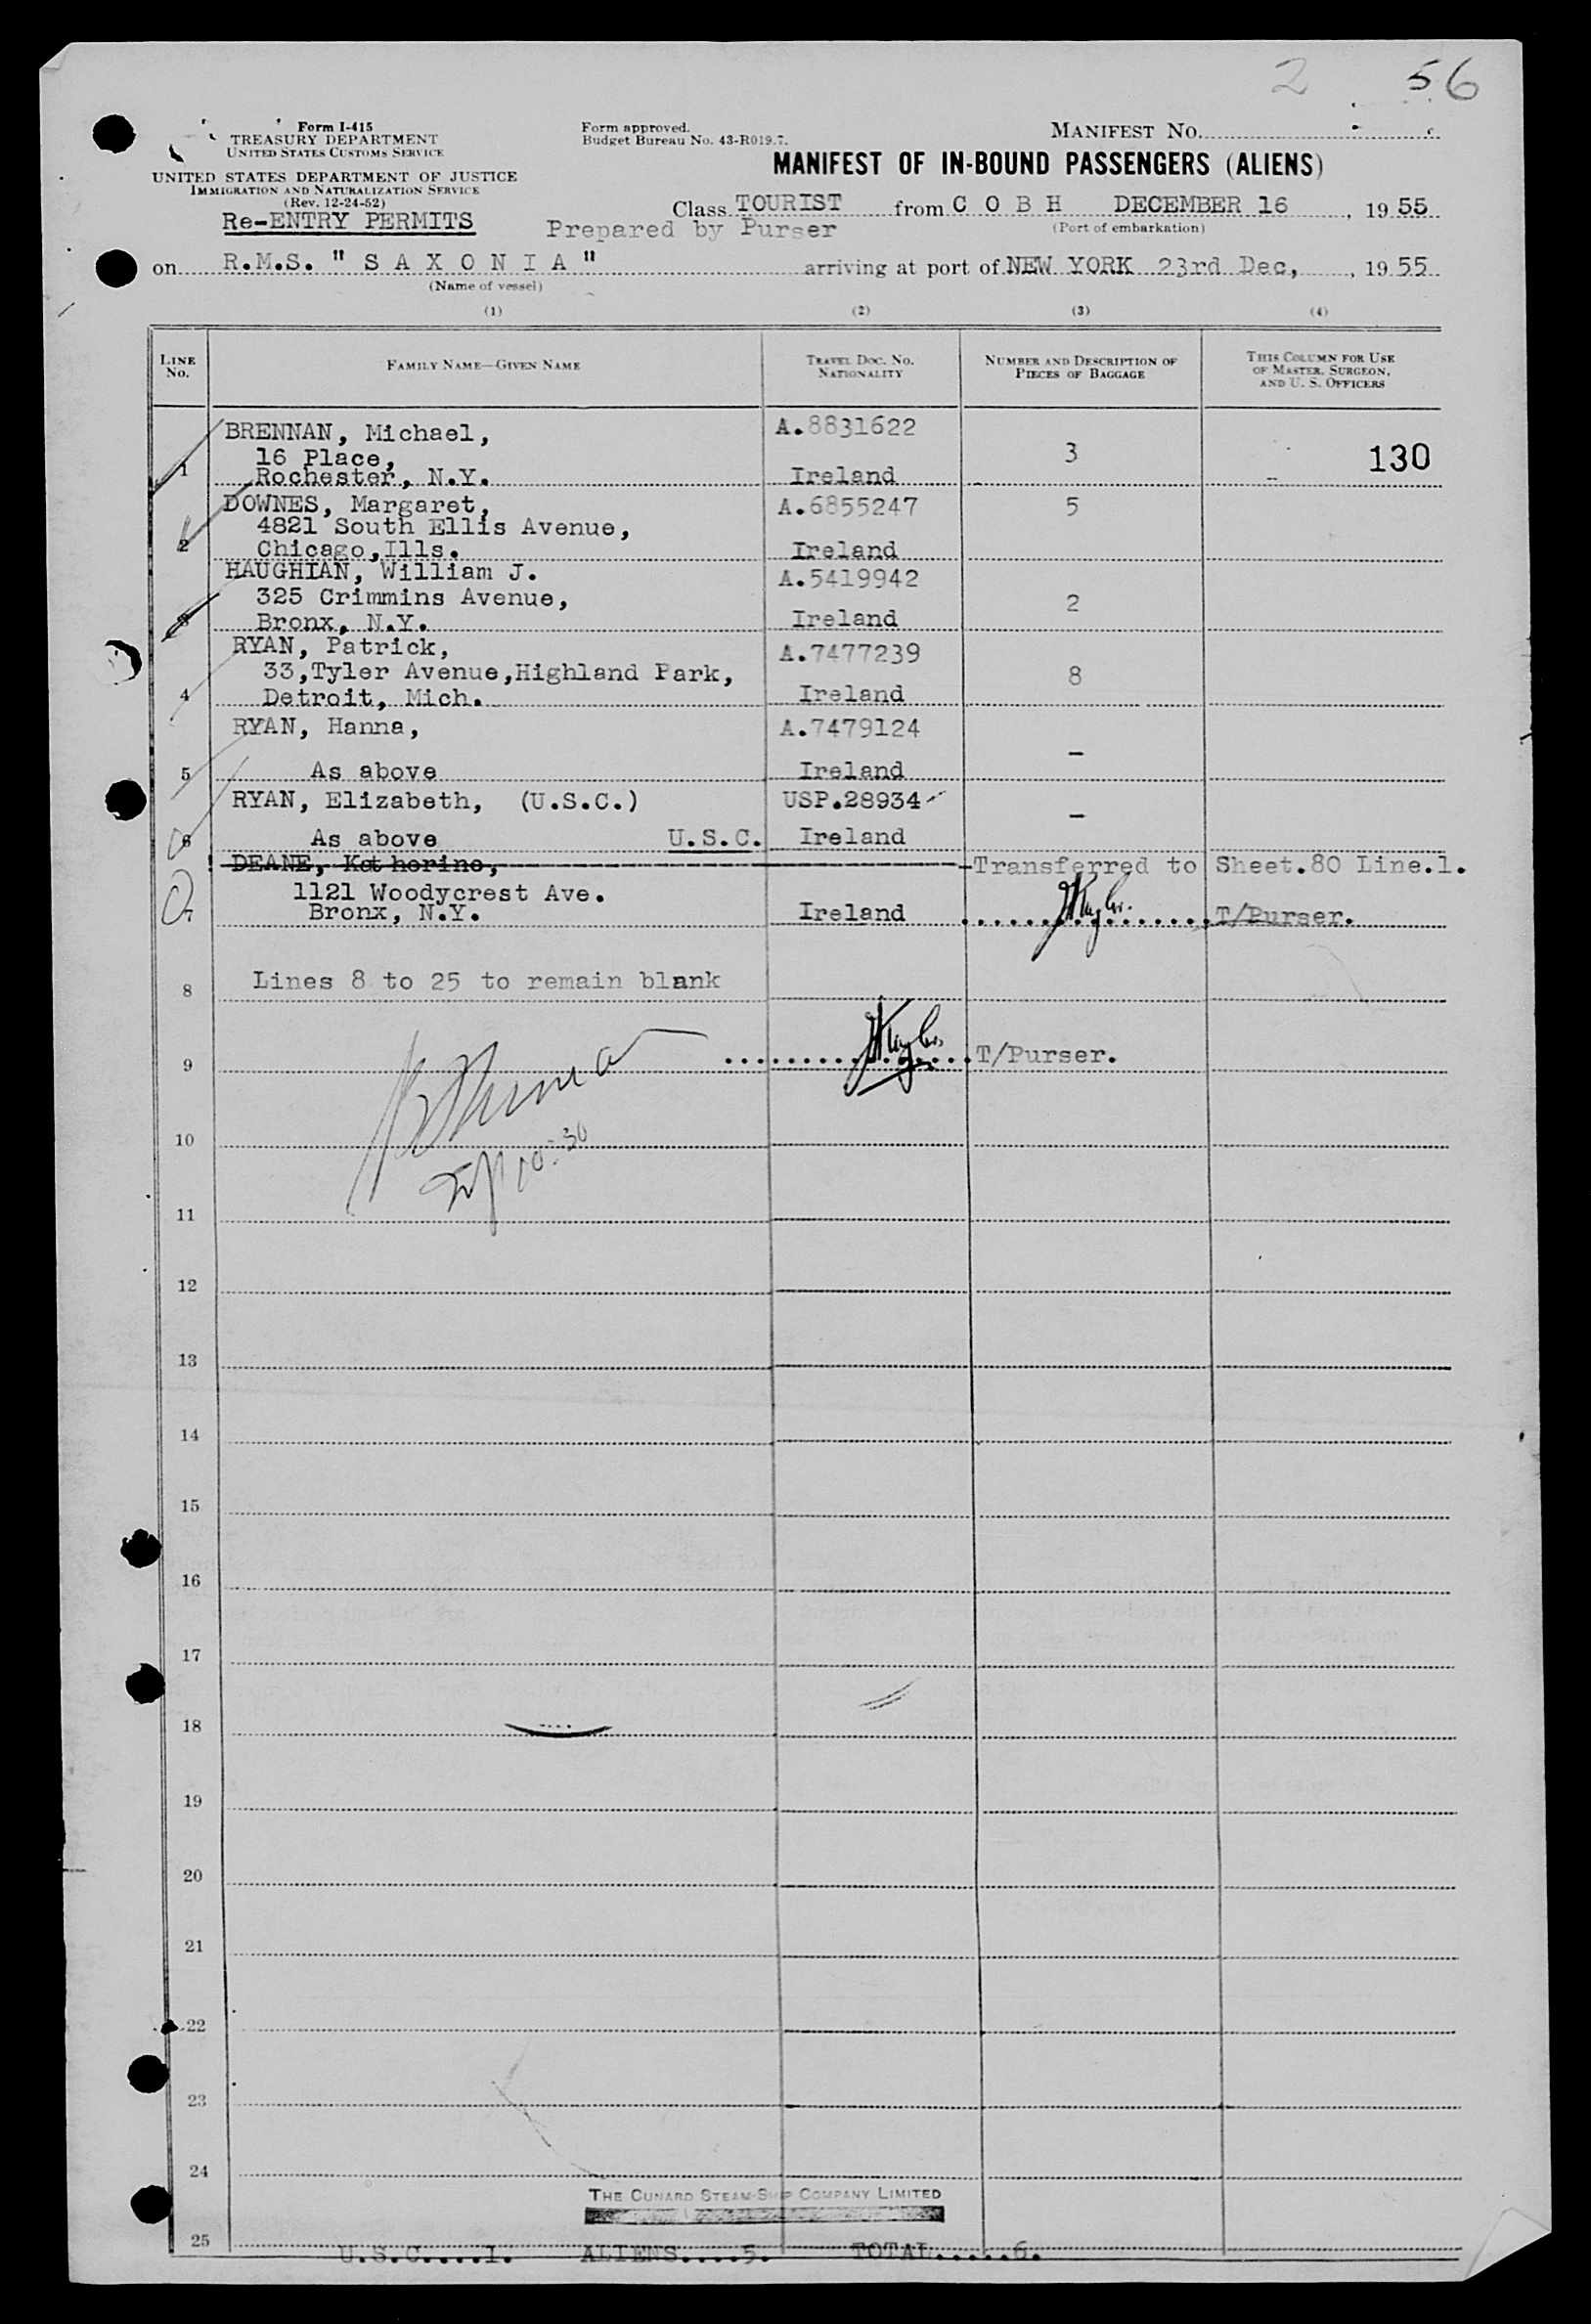 2 56
Form I-415
TREASURY DEPARTMENT
UNITED STATES CUSTOMS SERVICE
UNITED STATES DEPARTMENT OF JUSTICE
IMMIGRATION AND NATURALIZATION SERVICE
(Rev. 12-24-52)
Re-ENTRY PERMITS
Form approved.
Budget Bureau No. 43-R019.7.
MANIFEST NO.
MANIFEST OF IN-BOUND PASSENGERS (ALIENS)
Class TOURIST from C O B H DECEMBER 16, 1955
Prepared by Purser (Port of embarkation)
on R.M.S. " S A X O N I A " arriving at port of NEW YORK 23rd Dec, , 1955
(Name of vessel)
(1) (2) (3) (4)
LINE NO. FAMILY NAME—GIVEN NAME TRAVEL DOC. NO. NATIONALITY NUMBER AND DESCRIPTION OF PIECES OF BAGGAGE THIS COLUMN FOR USE OF MASTER, SURGEON, AND U. S. OFFICERS
BRENNAN, Michael, A.8831622
1 16 Place, 3 130
Rochester, N.Y. Ireland
DOWNES, Margaret, A.6855247 5
4821 South Ellis Avenue,
2 Chicago,Ills. Ireland
HAUGHIAN, William J. A.5419942
325 Crimmins Avenue, 2
3 Bronx, N.Y. Ireland
RYAN, Patrick, A.7477239
33,Tyler Avenue,Highland Park, 8
4 Detroit, Mich. Ireland
RYAN, Hanna, A.7479124
–
5 As above Ireland
RYAN, Elizabeth, (U.S.C.) USP.28934
–
6 As above U.S.C. Ireland
DEANE, Katherine, Transferred to Sheet.80 Line.1.
1121 Woodycrest Ave.
7 Bronx, N.Y. Ireland T/Purser.
8 Lines 8 to 25 to remain blank
9 T/Purser.
10
11
12
13
14
15
16
17
18
19
20
21
22
23
24
THE CUNARD STEAM-SHIP COMPANY LIMITED
25
U.S.C....1. ALIENS....5. TOTAL.....6.